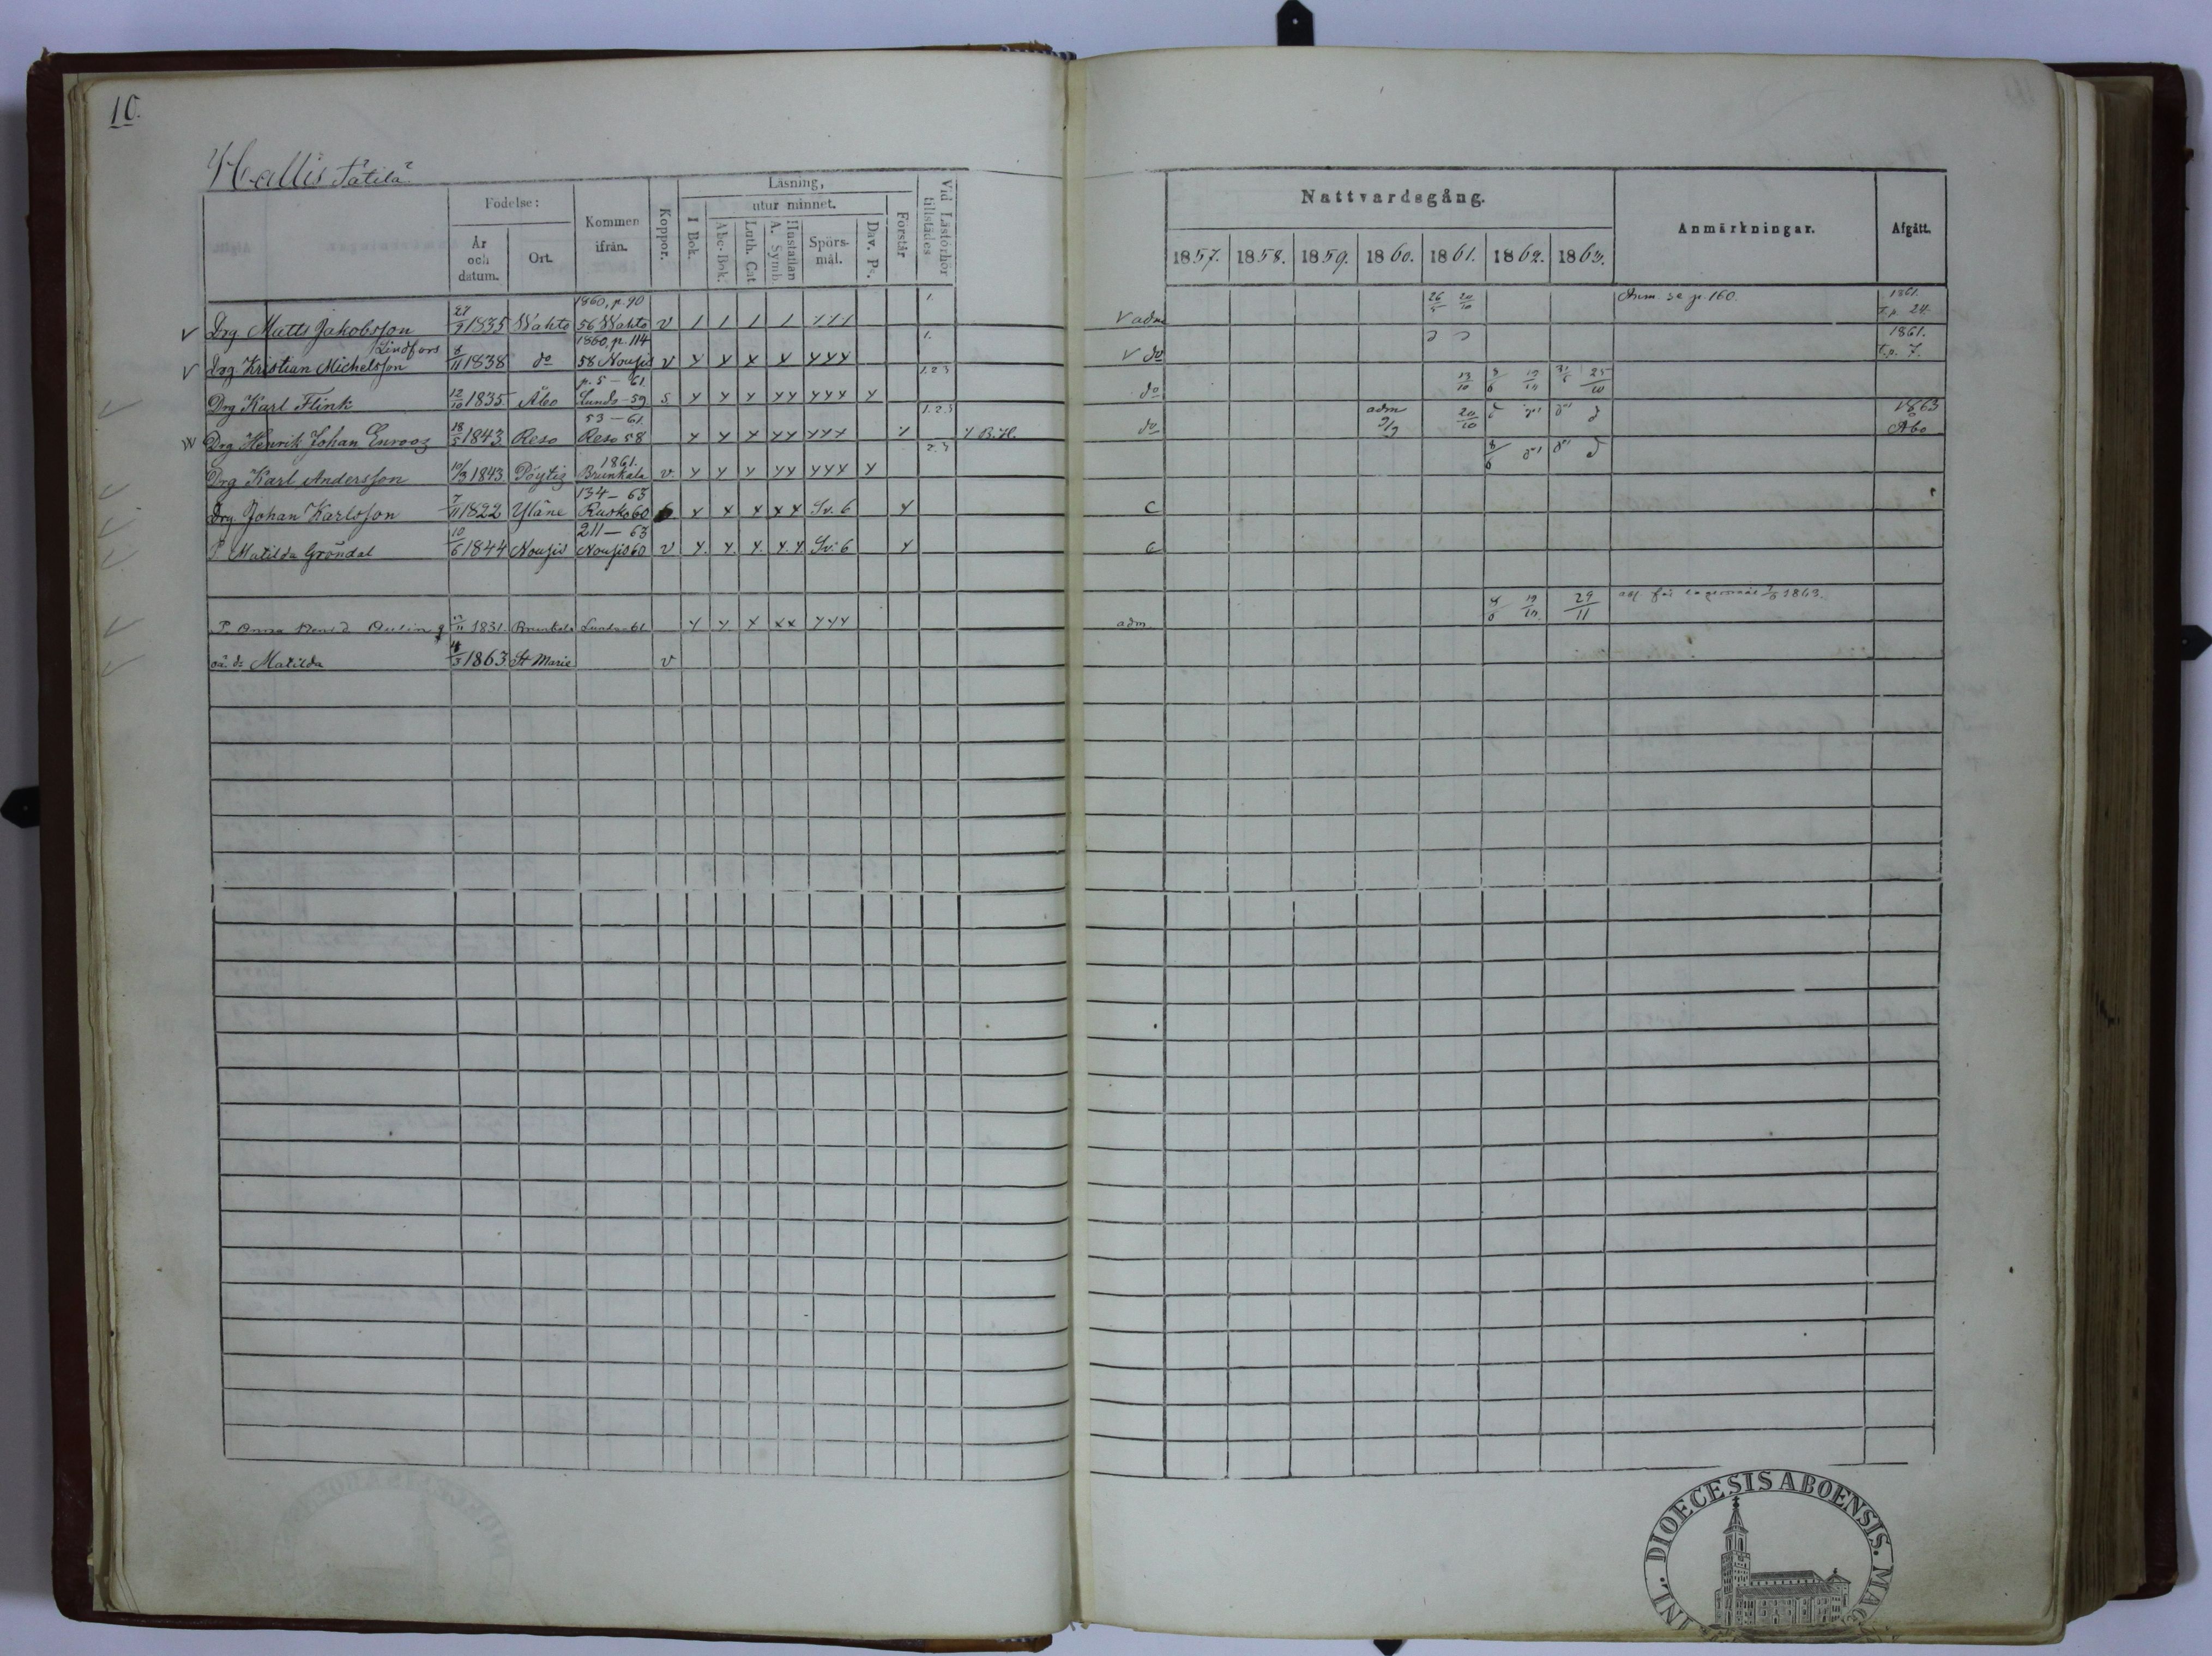 10.
Hallis Tätilä
Födelse:
År och datum.
Ort.
Kommen ifrån.
Koppor.
Läsning,
I Bok.
utur minnet.
Abc-Bok.
Luth. Cat
Hustaflan A. Symb.
Spörs-mål.
Dav. Ps.
Förstår
Vid Läsförhör tillstädes
Nattvardsgång.
1857. 1858. 1859. 1860. 1861. 1862. 1863.
Anmärkningar.
Afgått.
1860, p. 90 1. 26/5 20/10 Anm. se p. 160. 1861.
V Drg Matts Jakobsson 27/9 1835 Wahto 56 Wahto v V adm T.p. 24.
Lindfors 1860, p. 114 1. 1861.
V Drg Kristian Michelsson 8/11 1838 do 58 Nousis v V do T.p. 7.
p. 5 – 61. 1.2.3 13/10 8/6 19/10 25/10
Drg Karl Flink 12/10 1835 Åbo Lundo – 59 s do
53 – 61. 1.2.3 adm 20/10 1863
Drg Henrik Johan Enrooz 18/5 1843 Reso Reso 58 B.H. do Åbo
1861. 2.3 8/6
Drg Karl Andersson 10/3 1843 Pöytis Brunkala v.
134 – 63
Drg Johan Karlsson 7/11 1822 Yläne Rusko 60 Sv. 6 C
211 – 63
P. Matilda Gröndal 10/6 1844 Nousis Nousis 60 v Sv. 6 C
8/6 19/10 29/11 1863.
P. Anna 1831. Brunkala adm.
oä. dr Matilda 1863 St Marie v
DIOECESIS ABOENSIS. MAG